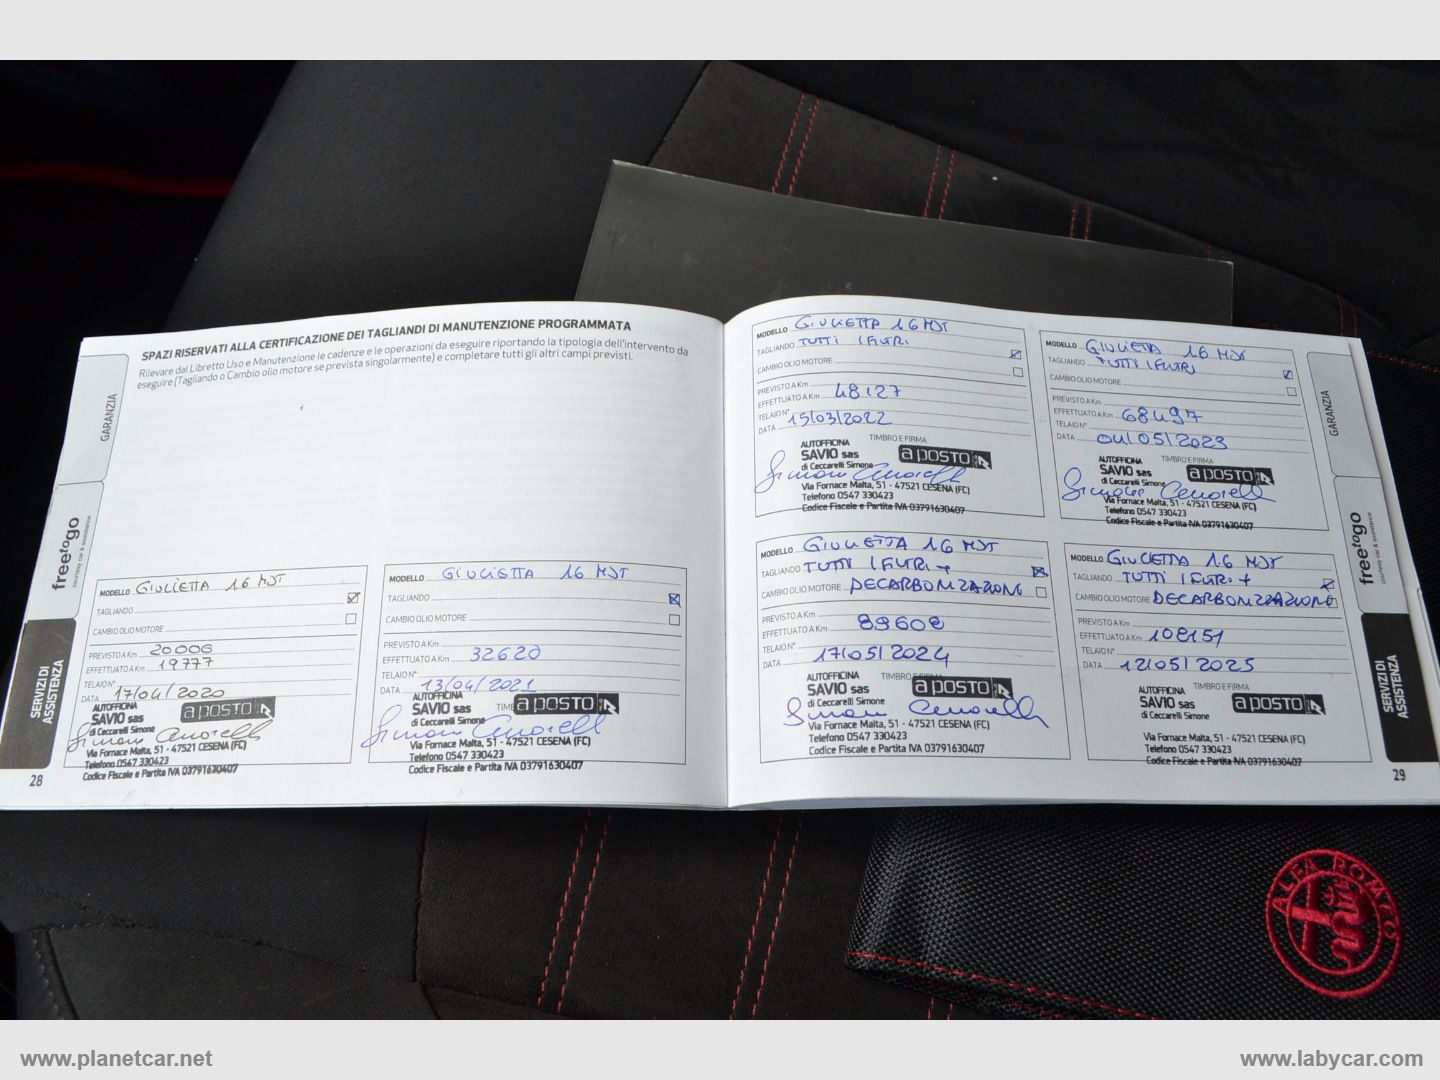 SPAZI RISERVATI ALLA CERTIFICAZIONE DEI TAGLIANDI DI MANUTENZIONE PROGRAMMATA
Rilevare dal Libretto Uso e Manutenzione le cadenze e le operazioni da eseguire riportando la tipologia dell'intervento da
eseguire (Tagliando o Cambio olio motore se prevista singolarmente) e completare tutti gli altri campi previsti.
GARANZIA
freetogo
courtesy car & assistance
SERVIZI DI
ASSISTENZA
MODELLO GIULIETTA 16 MJT
TAGLIANDO
CAMBIO OLIO MOTORE
PREVISTO A Km 20000
EFFETTUATO A Km 19777
TELAIO N°
DATA 17/04/2020
AUTOFFICINA
SAVIO sas
di Ceccarelli Simone
a posto
Via Fornace Malta, 51 - 47521 CESENA (FC)
Telefono 0547 330423
Codice Fiscale e Partita IVA 03791630407
28
MODELLO GIULIETTA 16 MJT
TAGLIANDO
CAMBIO OLIO MOTORE
PREVISTO A Km
EFFETTUATO A Km 32620
TELAIO N°
DATA 13/04/2021
AUTOFFICINA
SAVIO sas
di Ceccarelli Simone
a posto
Via Fornace Malta, 51 - 47521 CESENA (FC)
Telefono 0547 330423
Codice Fiscale e Partita IVA 03791630407
MODELLO GIULIETTA 16 MJT
TAGLIANDO TUTTI I FILTRI
CAMBIO OLIO MOTORE
PREVISTO A Km
EFFETTUATO A Km 48127
TELAIO N°
DATA 15/03/2022
TIMBRO E FIRMA
AUTOFFICINA
SAVIO sas
di Ceccarelli Simone
a posto
Via Fornace Malta, 51 - 47521 CESENA (FC)
Telefono 0547 330423
Codice Fiscale e Partita IVA 03791630407
MODELLO GIULIETTA 16 MJT
TAGLIANDO TUTTI I FILTRI
CAMBIO OLIO MOTORE
PREVISTO A Km
EFFETTUATO A Km 68497
TELAIO N°
DATA 04/05/2023
TIMBRO E FIRMA
AUTOFFICINA
SAVIO sas
di Ceccarelli Simone
a posto
Via Fornace Malta, 51 - 47521 CESENA (FC)
Telefono 0547 330423
Codice Fiscale e Partita IVA 03791630407
MODELLO GIULIETTA 16 MJT
TAGLIANDO TUTTI I FILTRI +
CAMBIO OLIO MOTORE DECARBONIZAZIONE
PREVISTO A Km
EFFETTUATO A Km 89608
TELAIO N°
DATA 17/05/2024
TIMBRO E FIRMA
AUTOFFICINA
SAVIO sas
di Ceccarelli Simone
a posto
Via Fornace Malta, 51 - 47521 CESENA (FC)
Telefono 0547 330423
Codice Fiscale e Partita IVA 03791630407
MODELLO GIULIETTA 16 MJT
TAGLIANDO TUTTI I FILTRI +
CAMBIO OLIO MOTORE DECARBONIZZAZIONE
PREVISTO A Km
EFFETTUATO A Km 108151
TELAIO N°
DATA 12/05/2025
TIMBRO E FIRMA
AUTOFFICINA
SAVIO sas
di Ceccarelli Simone
a posto
Via Fornace Malta, 51 - 47521 CESENA (FC)
Telefono 0547 330423
Codice Fiscale e Partita IVA 03791630407
GARANZIA
freetogo
courtesy car & assistance
SERVIZI DI
ASSISTENZA
29
ALFA ROMEO
www.planetcar.net
www.labycar.com